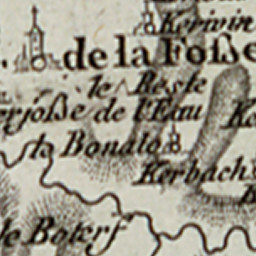 Kerwin
de la Foße
le Beste
erjoße de l'Eau
la Bonalo
Kerbach
le Boterf